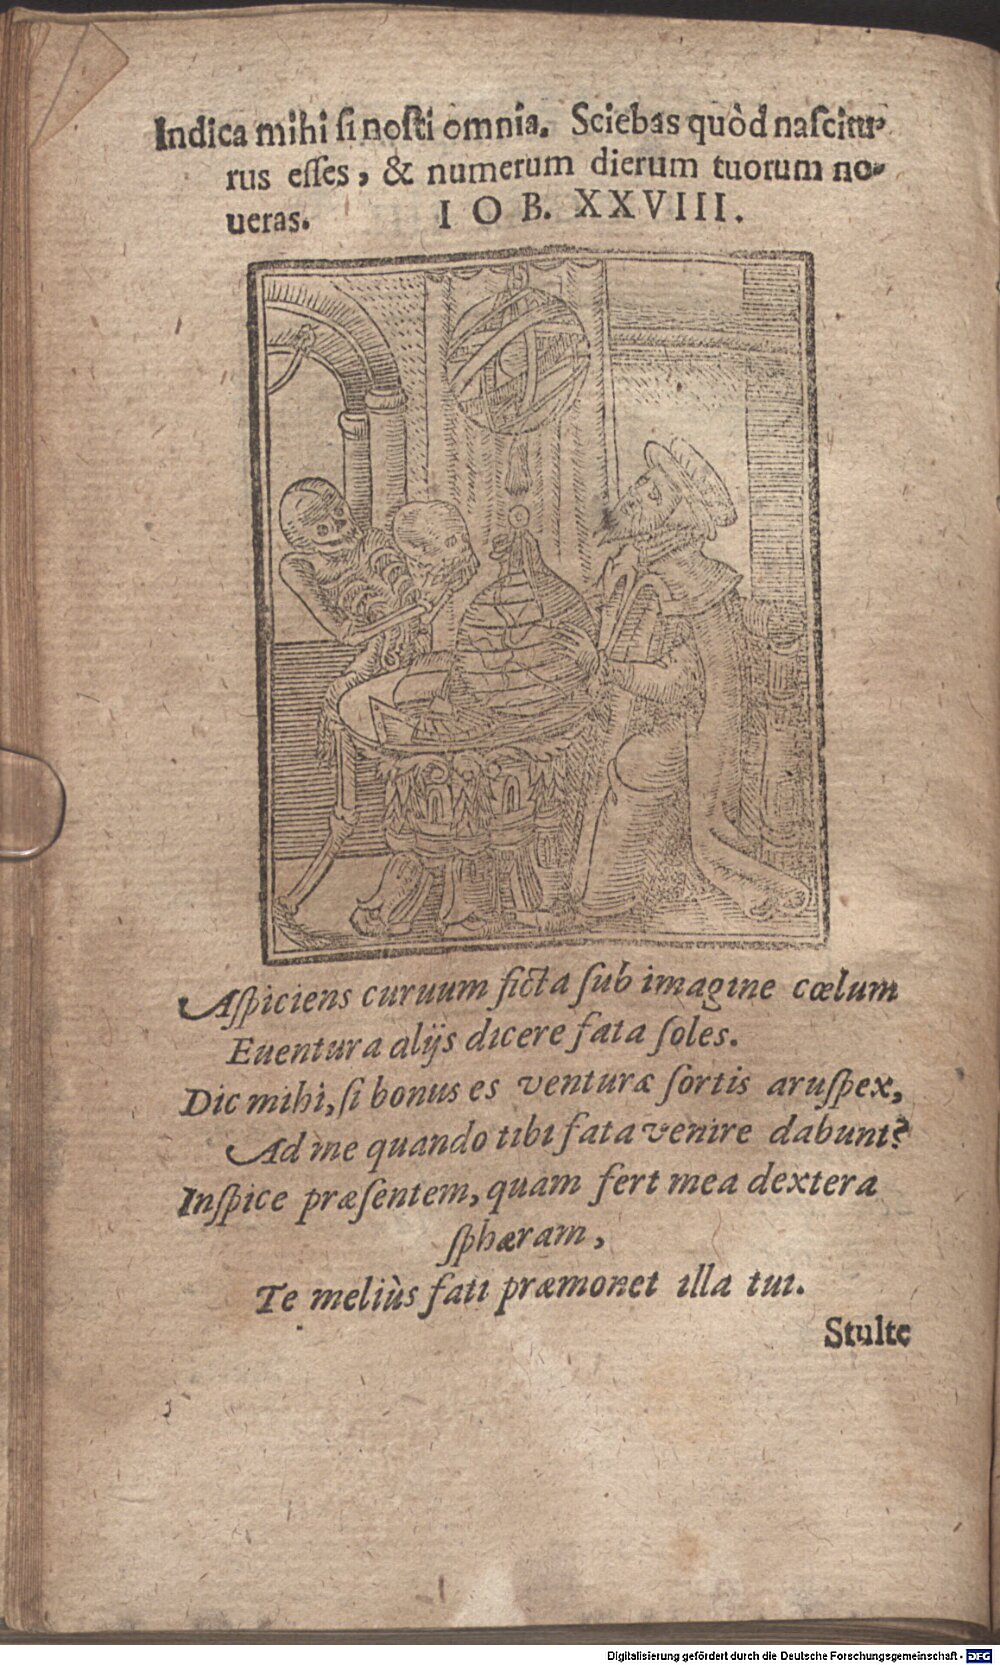 Indica mihi ſi noſti omnia. Sciebas quòd naſcitu-
rus eſſes, & numerum dierum tuorum no-
ueras. IOB. XXVIII.
Aſpiciens curuum ficta ſub imagine cœlum
Euentura alijs dicere fata ſoles.
Dic mihi, ſi bonus es venturæ ſortis aruſpex,
Ad me quando tibi fata venire dabunt?
Inſpice præſentem, quam fert mea dextera
ſphæram,
Te meliùs fati præmonet illa tui.
Stulte
Digitalisierung gefördert durch die Deutsche Forschungsgemeinschaft - DFG